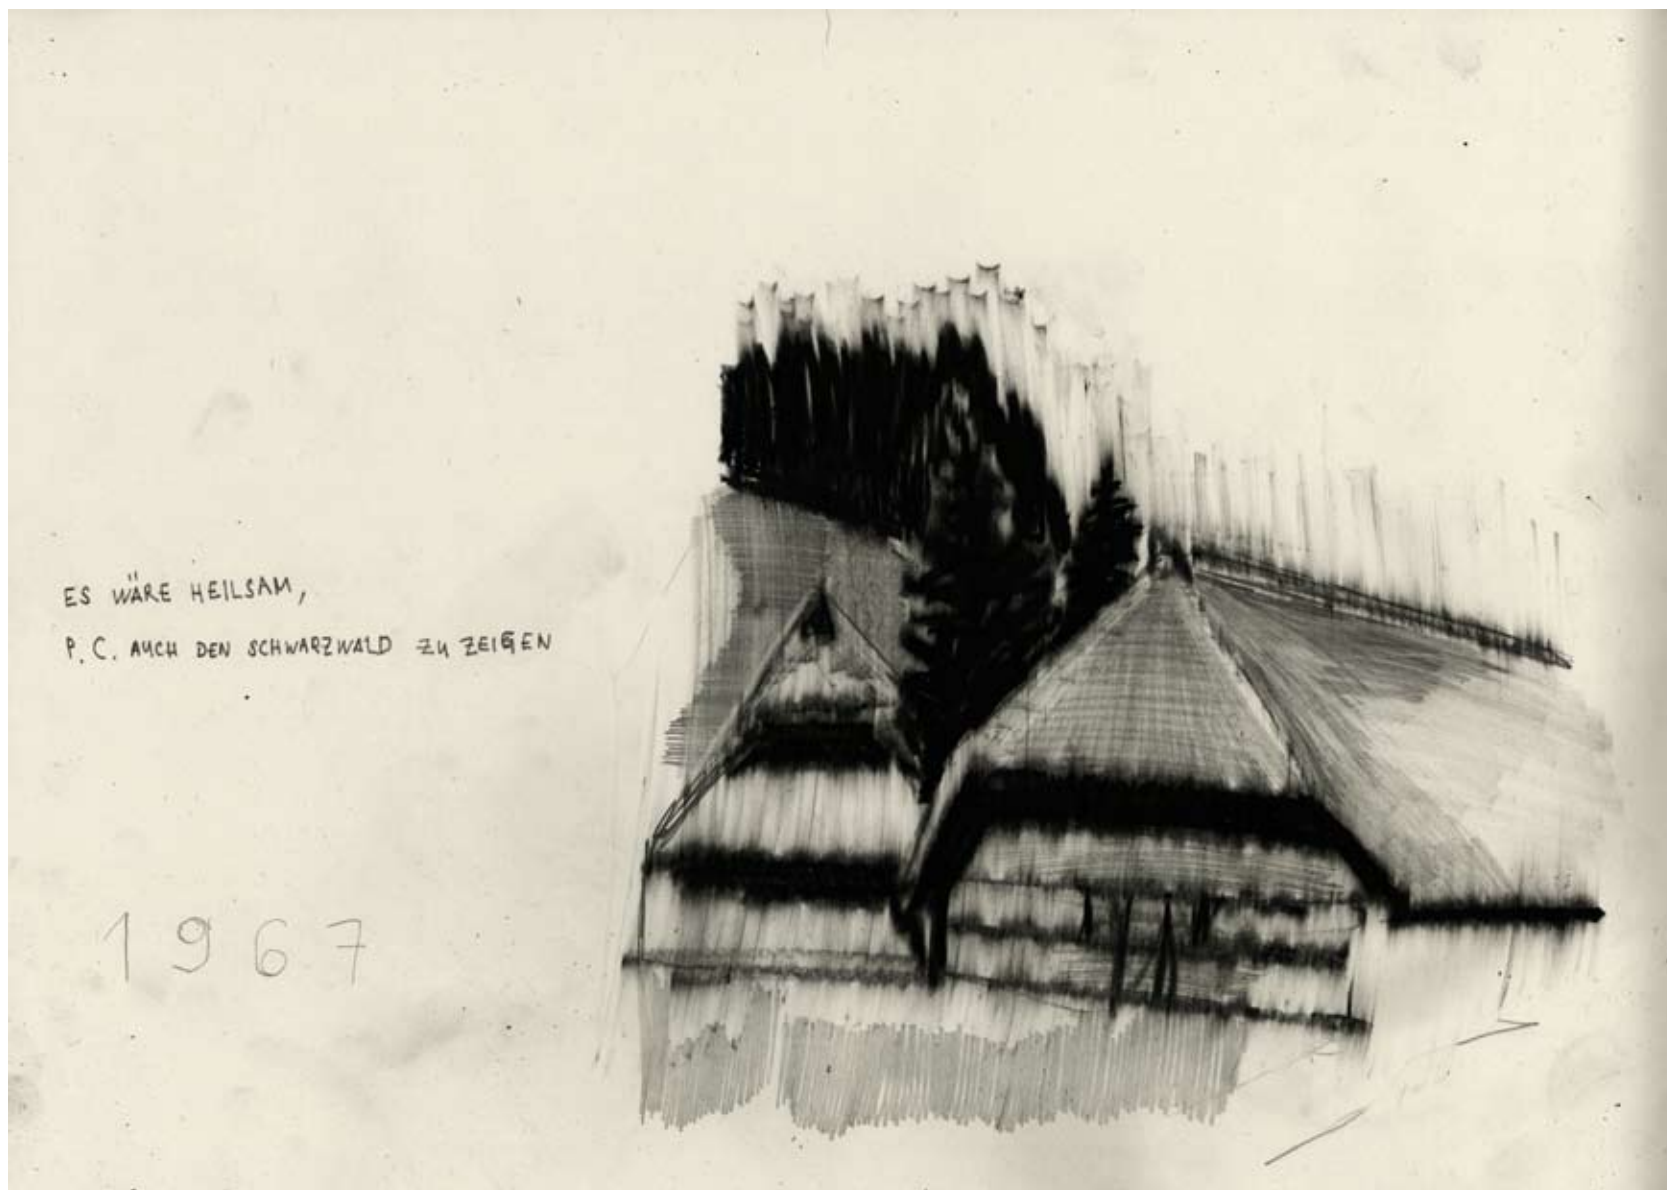 ES WÄRE HEILSAM,
P.C. AUCH DEN SCHWARZWALD ZU ZEIGEN
1967